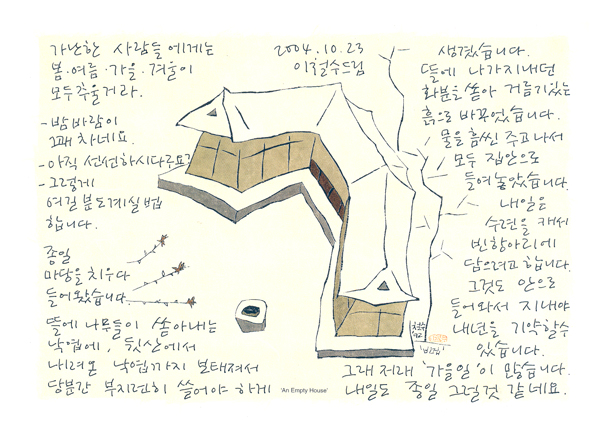 가난한 사람들에게는
봄·여름·가을·겨울이
모두 추울거라.
-밤바람이
꽤 차네요.
-아직 선선하시다고요?
-그렇게
여길 분도 계실 법
합니다.
종일
마당을 치우다
들어왔습니다.
뜰에 나무들이 쏟아내는
낙엽에, 뒷산에서
나려온 낙엽까지 보태져서
당분간 부지런히 쓸어야 하게
2004.10.23
이철수드림
생겼습니다.
뜰에 나가지내던
화분을 쏟아 거름기있는
흙으로 바꾸었습니다.
물을 흠씬 주고나서
모두 집안으로
들여놓았습니다.
내일은
수련을 캐서
빈항아리에
담으려고 합니다.
그것도 안으로
들어와서 지내야
내년을 기약할수
있습니다.
그래저래 '가을일'이 많습니다.
내일도 종일 그럴것 같네요.
'빈집'
'An Empty House'